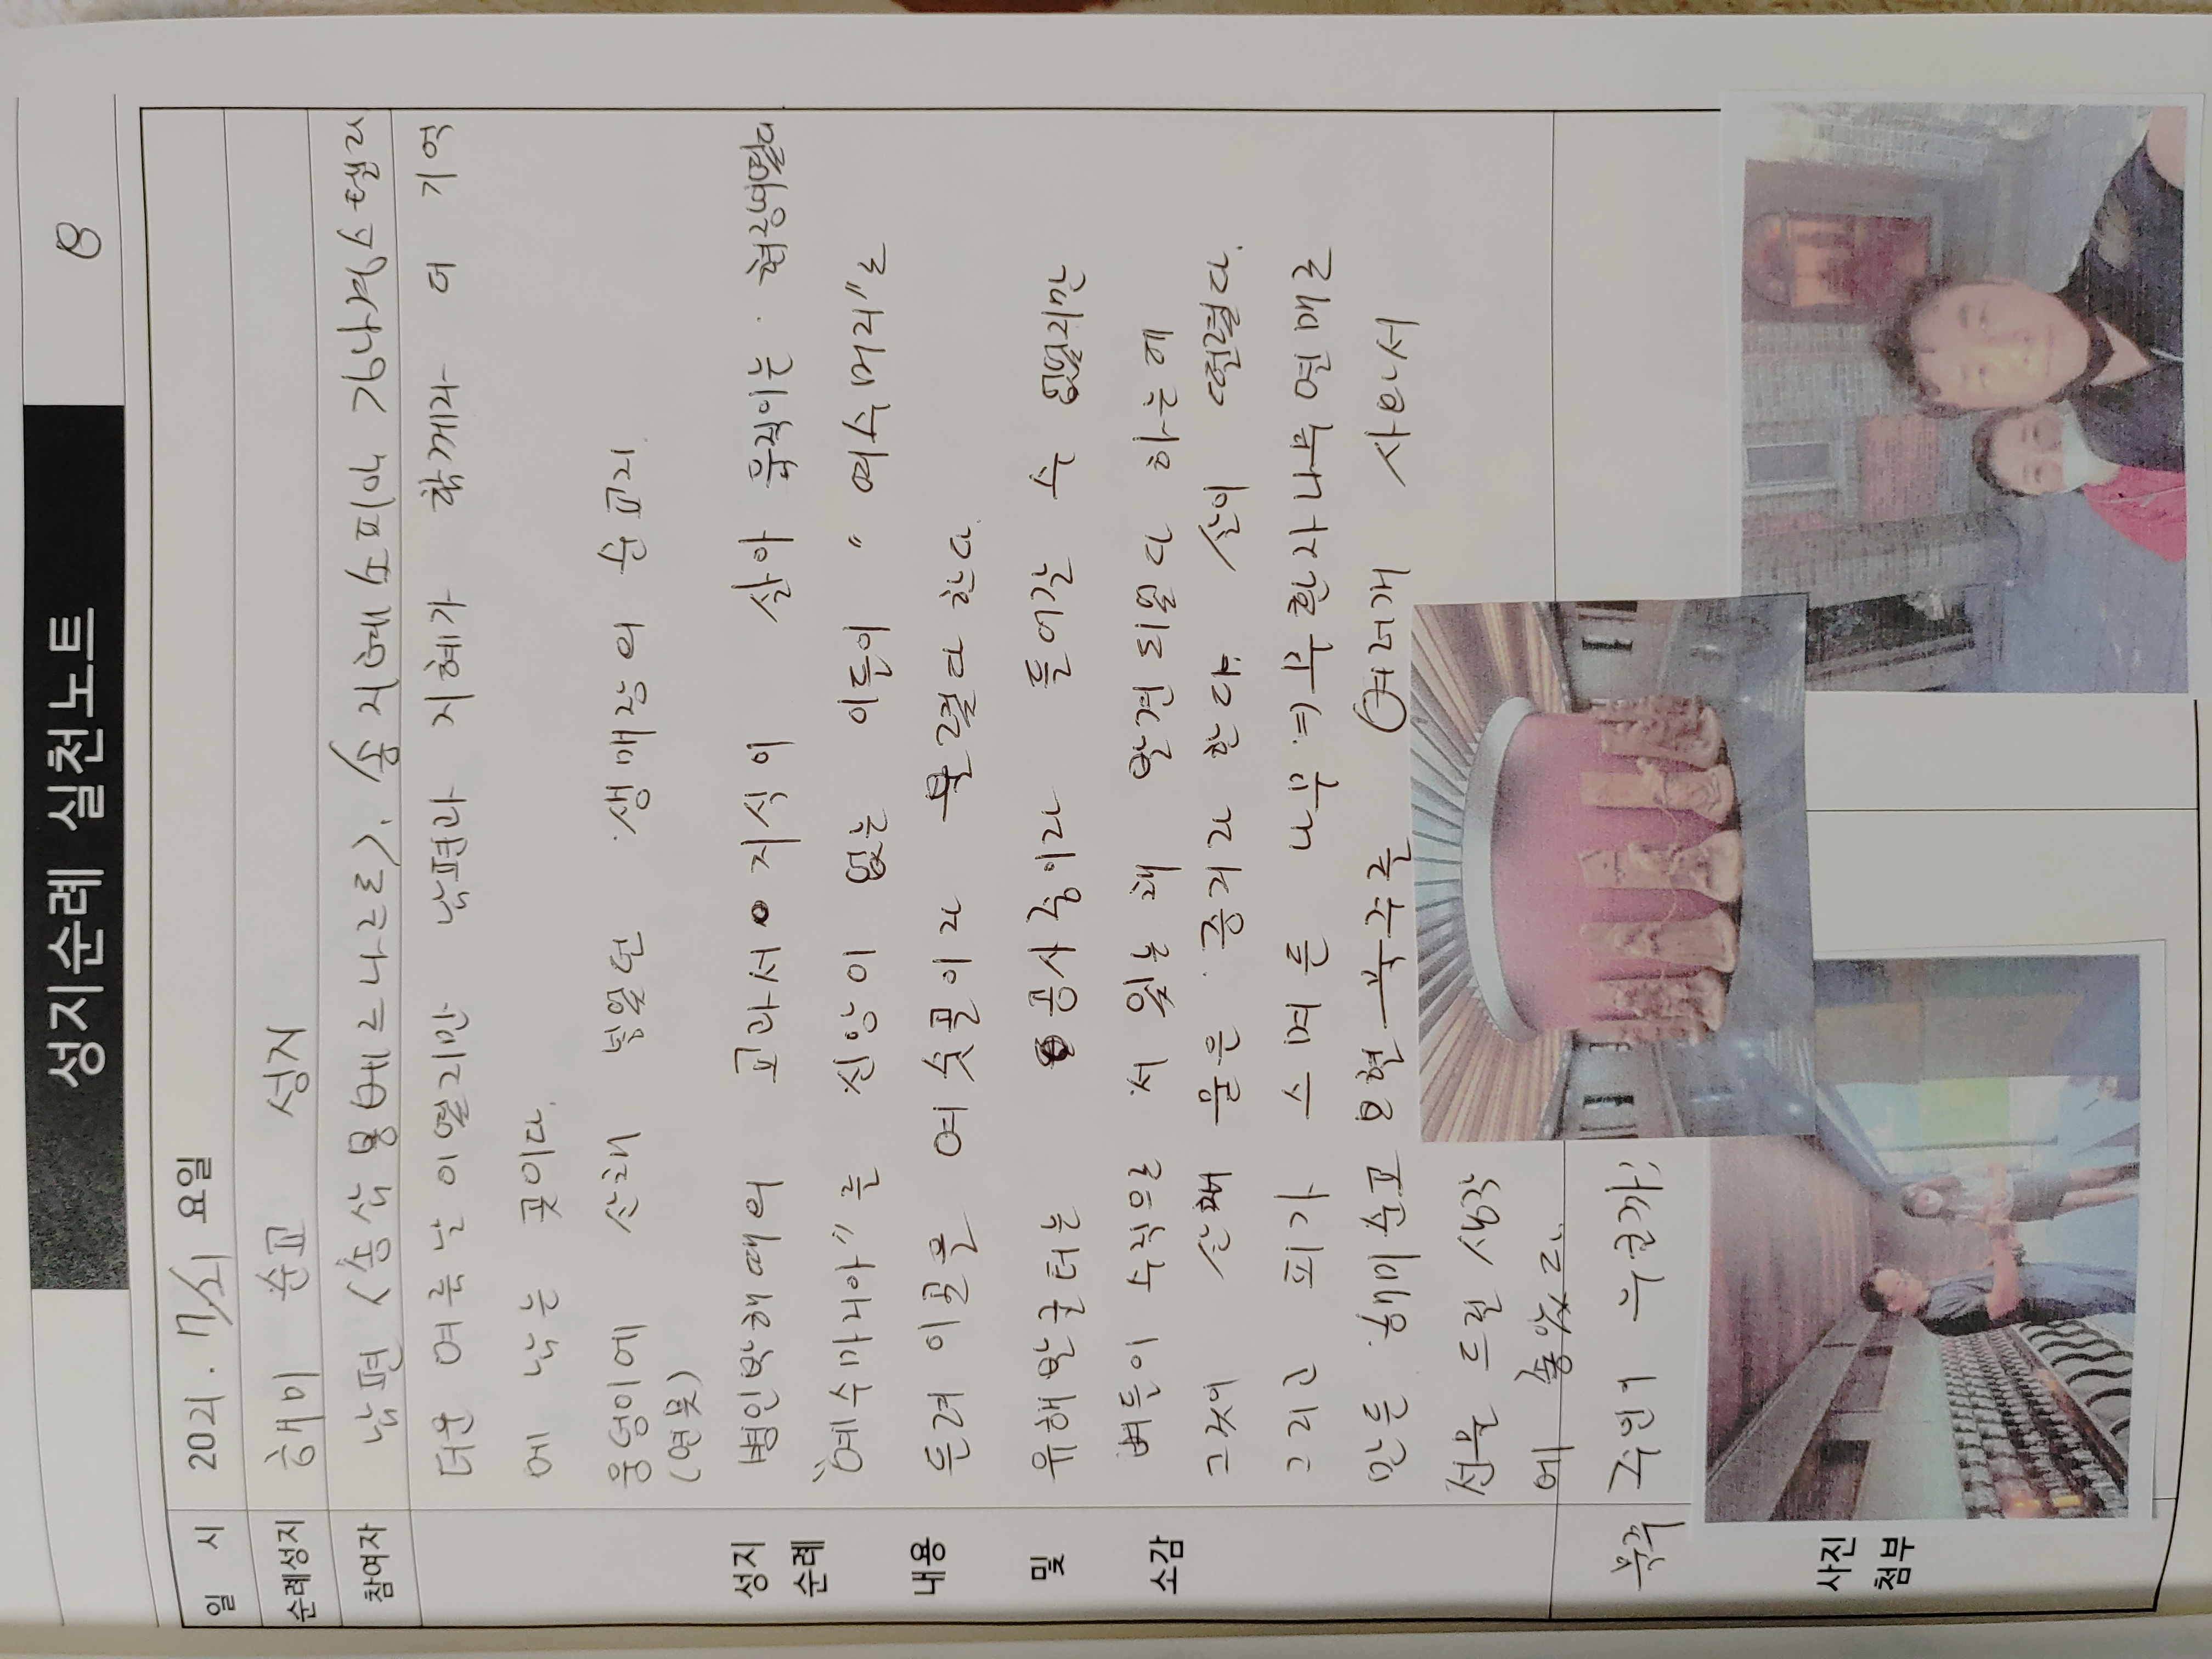 성지순례 실천노트 8
일 시 2021. 7/21 요일
순례성지 해미 순교 성지
참여자 남편 <송상용(베르나르도)>, 송지혜소피아 김남경스텔라
더운 여름날이었지만 남편과 지혜가 함께라 더 기억
에 남는 곳이다.
웅덩이에 산채 넣었던 생매장의 순교지.
(연못)
성지 병인박해때의 교과서 지식이 살아 움직이는 현장이었다
순례 "예수마리아"를 신앙이 없는 이들이 "여수머리"로
내용 들려 이곳을 여숫골이라 불렀다 한다.
및 유해발굴터는 공사중이라 들어갈 수 없었지만
소감 뼈들이 수직으로 서 있는 채 발견되었다 하는데
그것이 산채 묻은 증거라 한다. 살이 떨렸다.
그리고 피가 스며든 나무 무환자나무 열매로
만든 해미순교 묵주를 여러개 사와서
선물 드릴 생각
에 좋았다.
묵주 주인이 누굴까?
사진
첨부